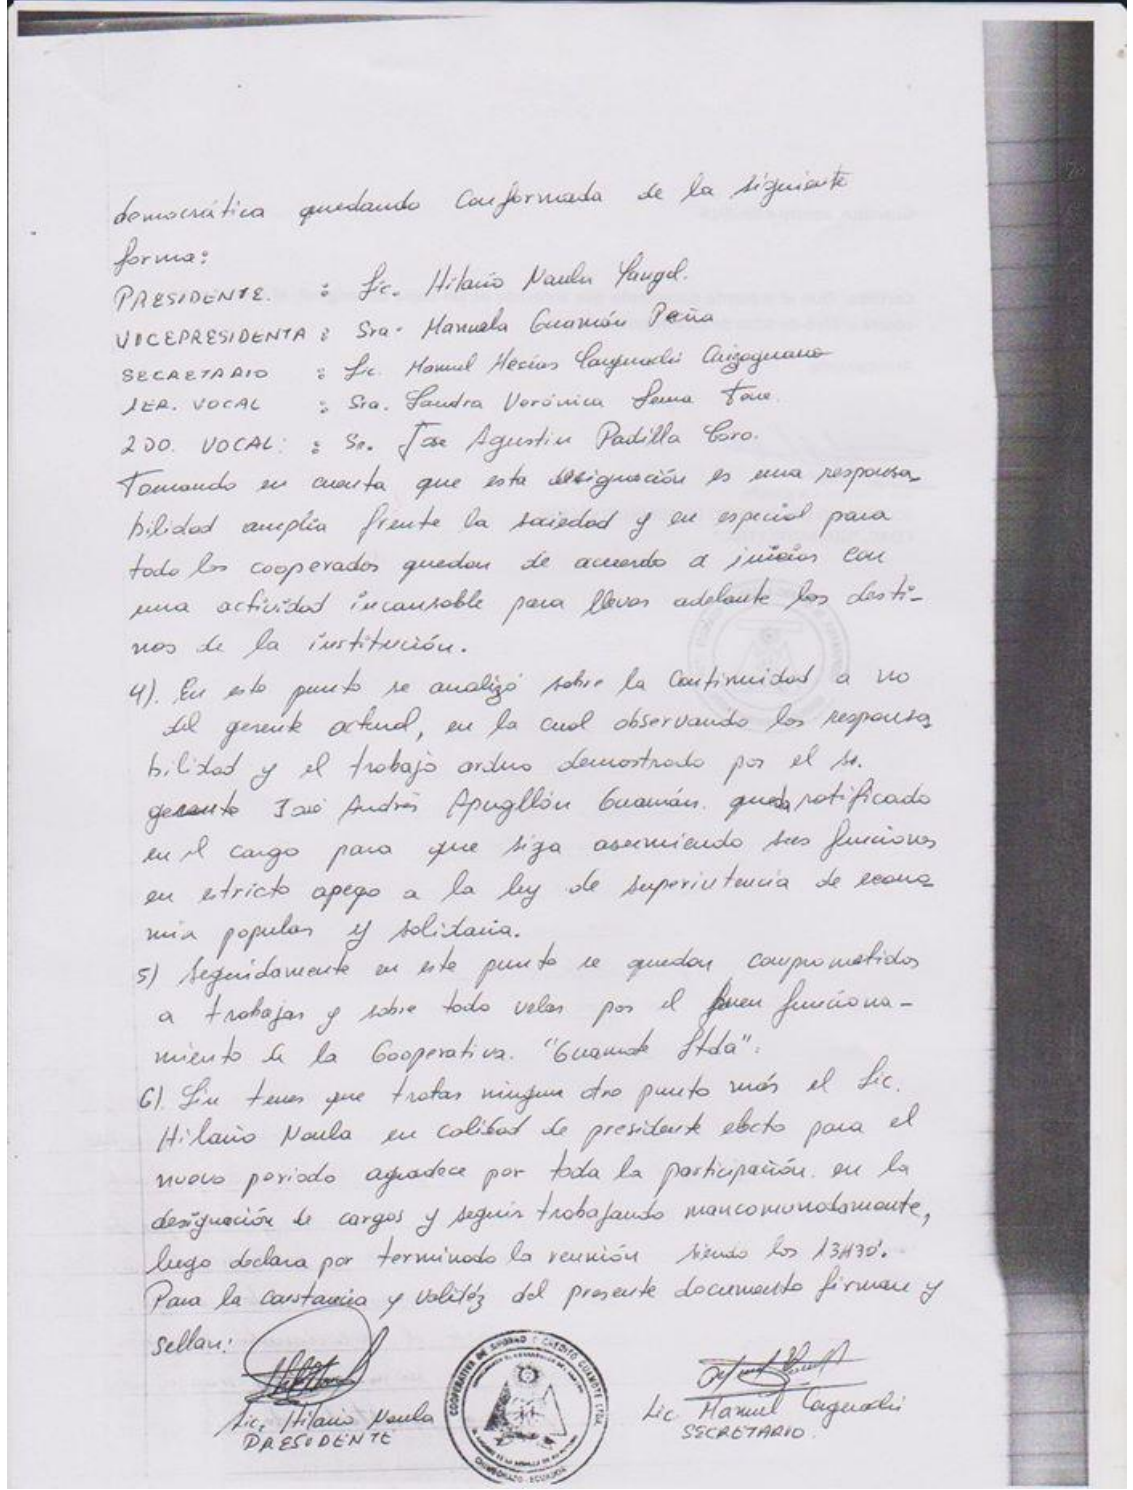 democrática quedando Conformada de la siguiente
forma:
PRESIDENTE. : Lic. Hilario Naula
VICEPRESIDENTA : Sra. Manuela Guamán Peña
SECRETARIO : Lic. Manuel Mecías
1ER. VOCAL : Sra. Sandra Verónica Lema
2DO. VOCAL: : Sr. José Agustin Padilla Coro.
Tomando en cuenta que esta designación es una responsa_
bilidad amplia frente la sociedad y en especial para
todo los cooperados quedan de acuerdo a iniciar con
una actividad incansable para llevar adelante los desti-
nos de la institución.
4). En este punto se analizó sobre la Continuidad a no
del gerente actual, en la cual observando los responsa_
bilidad y el trabajo arduo demostrado por el sr.
gerente José Andrés Apugllón Guamán. queda ratificado
en el cargo para que siga asumiendo sus funciones
en estricto apego a la ley de superintencia de econo_
mia popular y solidaria.
5) Seguidamente en este punto se quedan comprometidos
a trabajar y sobre todo velar por el buen funciona-
miento de la Cooperativa. "Guamote Ltda".
6). Sin tener que tratar ningun otro punto más el Lic.
Hilario Naula en calidad de presidente electo para el
nuevo periodo agradece por toda la participación. en la
designación de cargos y seguir trabajando mancomunadamente,
luego declara por terminado la reunión siendo los 13H30'.
Para la constancia y validéz del presente documento firman y
sellan:
Lic. Hilario Naula
PRESIDENTE
COOPERATIVA DE AHORRO Y CREDITO GUAMOTE LTDA.
CHIMBORAZO - ECUADOR
Lic Manuel
SECRETARIO.